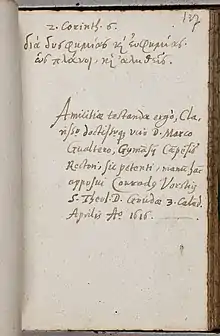 137
2. Corinth. 6.
διὰ δυσφημίας κ̀ εὐφημίας
ὡς πλάνοι, κ̀ ἀληθεῖς.
Amicitiæ testandæ ergò, Cla,
rissº doctissimoq, viro D. Marco
Gualtero, Gymnasij Cãpēsis
Rectori, sic petenti, manum hanc
apposui Conradq Vorstiq
S. Theol. D. Goudæ 3. Calend.
Aprilis Aº 1616.